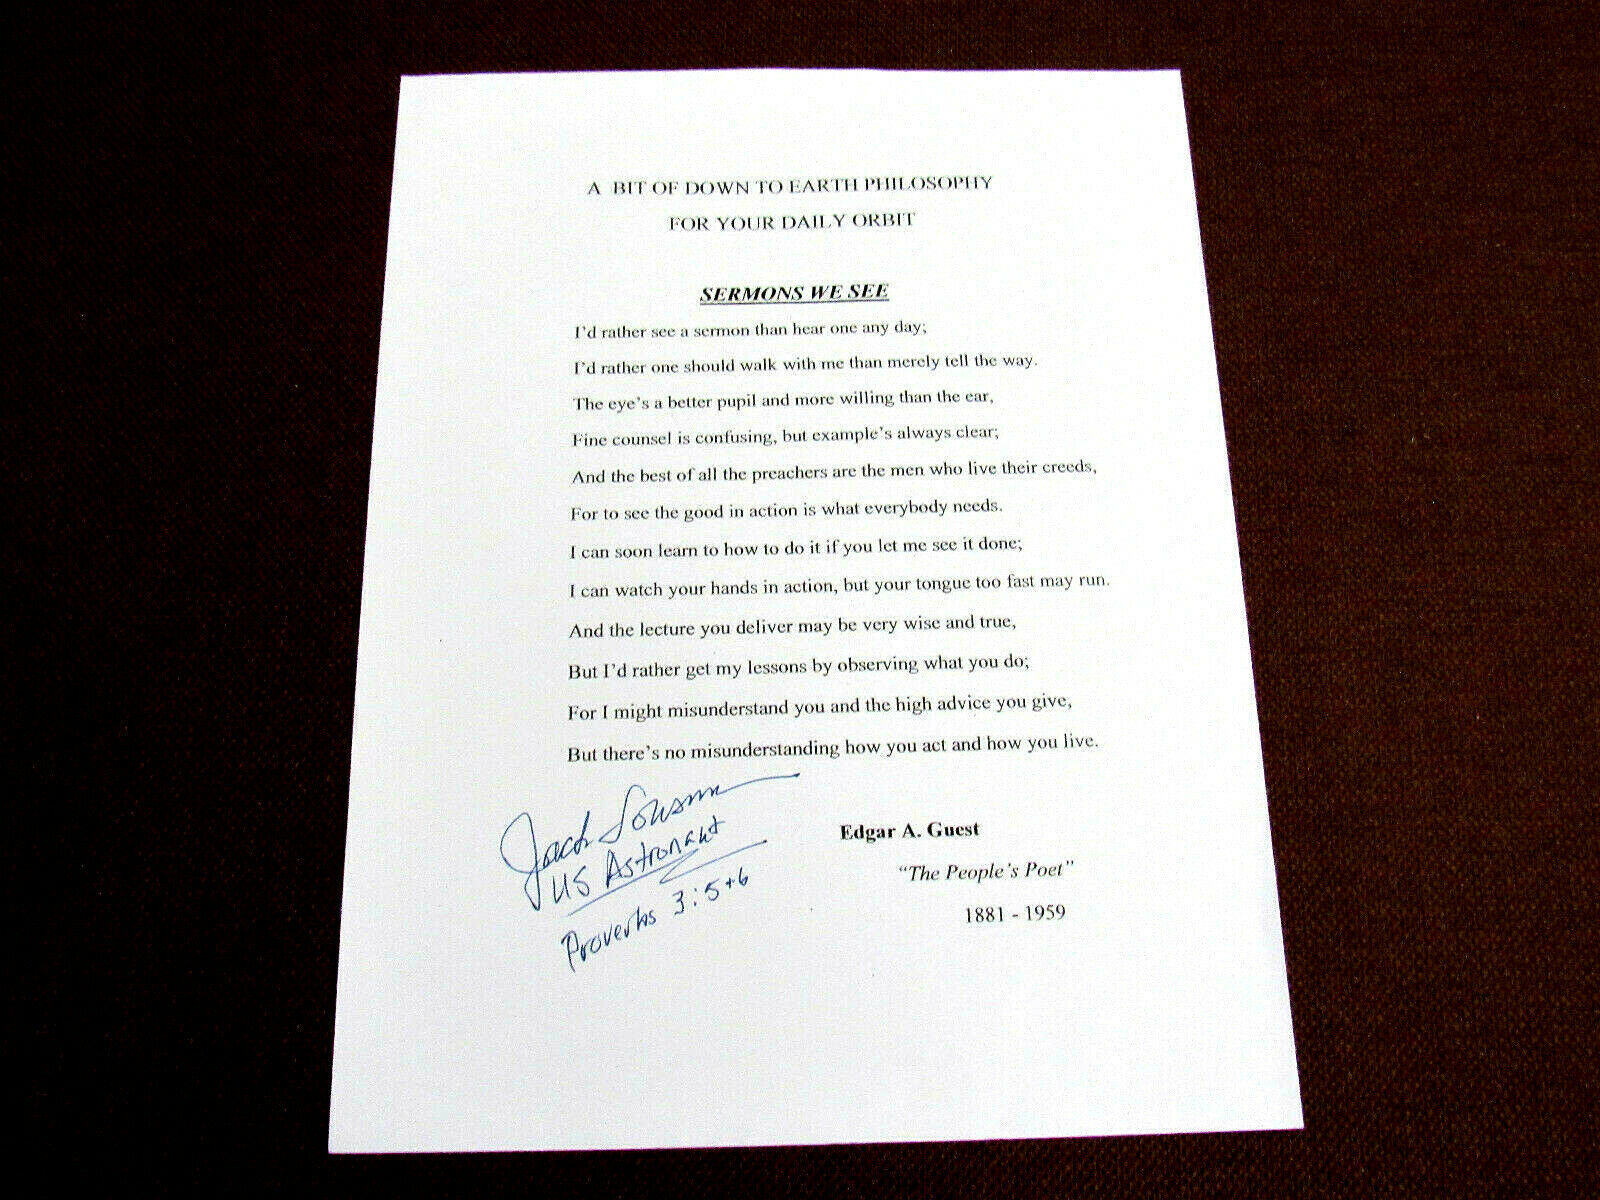 A BIT OF DOWN TO EARTH PHILOSOPHY
FOR YOUR DAILY ORBIT
SERMONS WE SEE
I'd rather see a sermon than hear one any day;
I'd rather one should walk with me than merely tell the way.
The eye's a better pupil and more willing than the ear,
Fine counsel is confusing, but example's always clear;
And the best of all the preachers are the men who live their creeds,
For to see the good in action is what everybody needs.
I can soon learn to how to do it if you let me see it done;
I can watch your hands in action, but your tongue too fast may run.
And the lecture you deliver may be very wise and true,
But I'd rather get my lessons by observing what you do;
For I might misunderstand you and the high advice you give,
But there's no misunderstanding how you act and how you live.
Jack Lousma
US Astronaut
Proverbs 3:5+6
Edgar A. Guest
"The People's Poet"
1881 - 1959